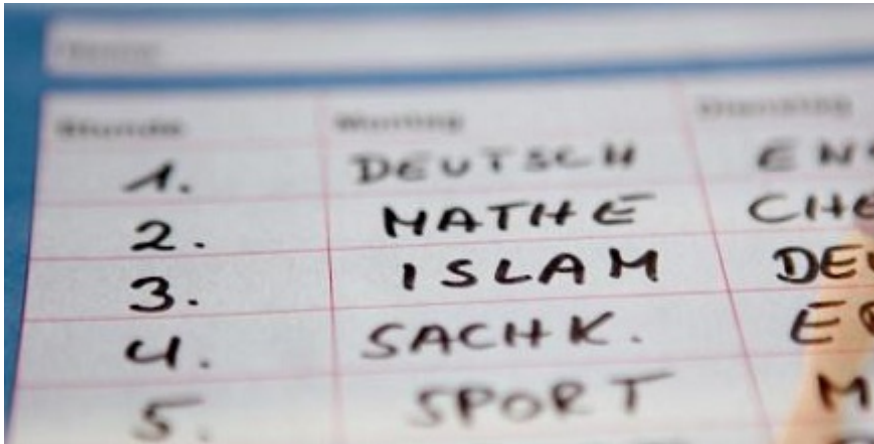 Stunde Montag Dienstag
1. DEUTSCH EN
2. MATHE CHE
3. ISLAM DEU
4. SACHK.
5. SPORT M